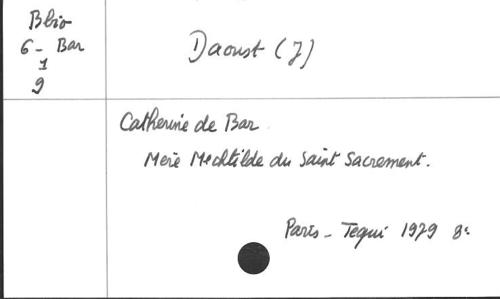 Bbio
6 - Bar
1
9
Daoust (J)
Catherine de Bar.
Mère Mechtilde du Saint Sacrement.
Paris - Tequi 1979 8°